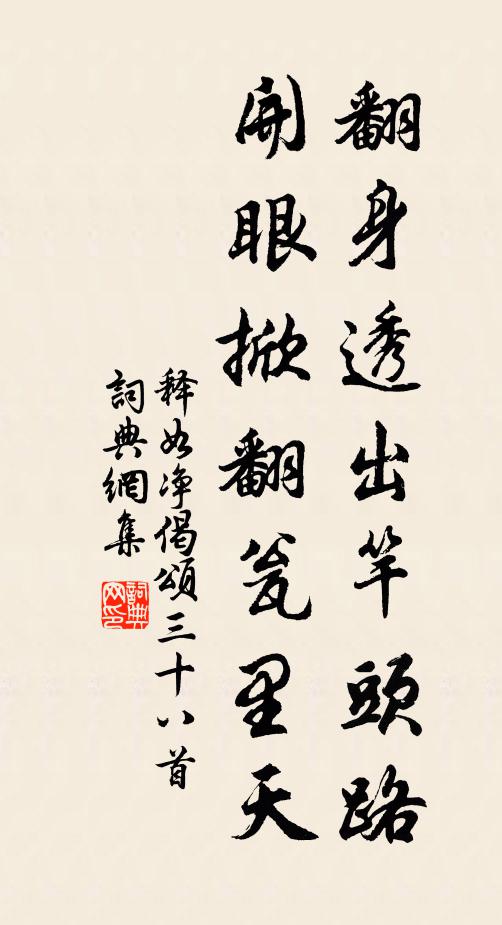 翻身透出竿頭路
開眼掀翻瓮里天
释如净偈頌三十八首
詞典網集
詞典
网印